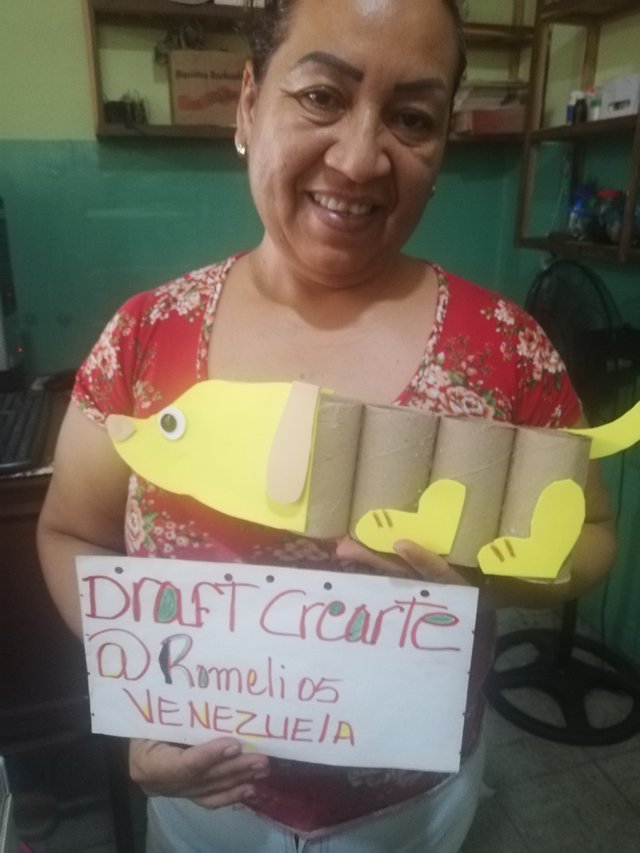 DraFT Crearte
@Romeli05
VENEZUElA